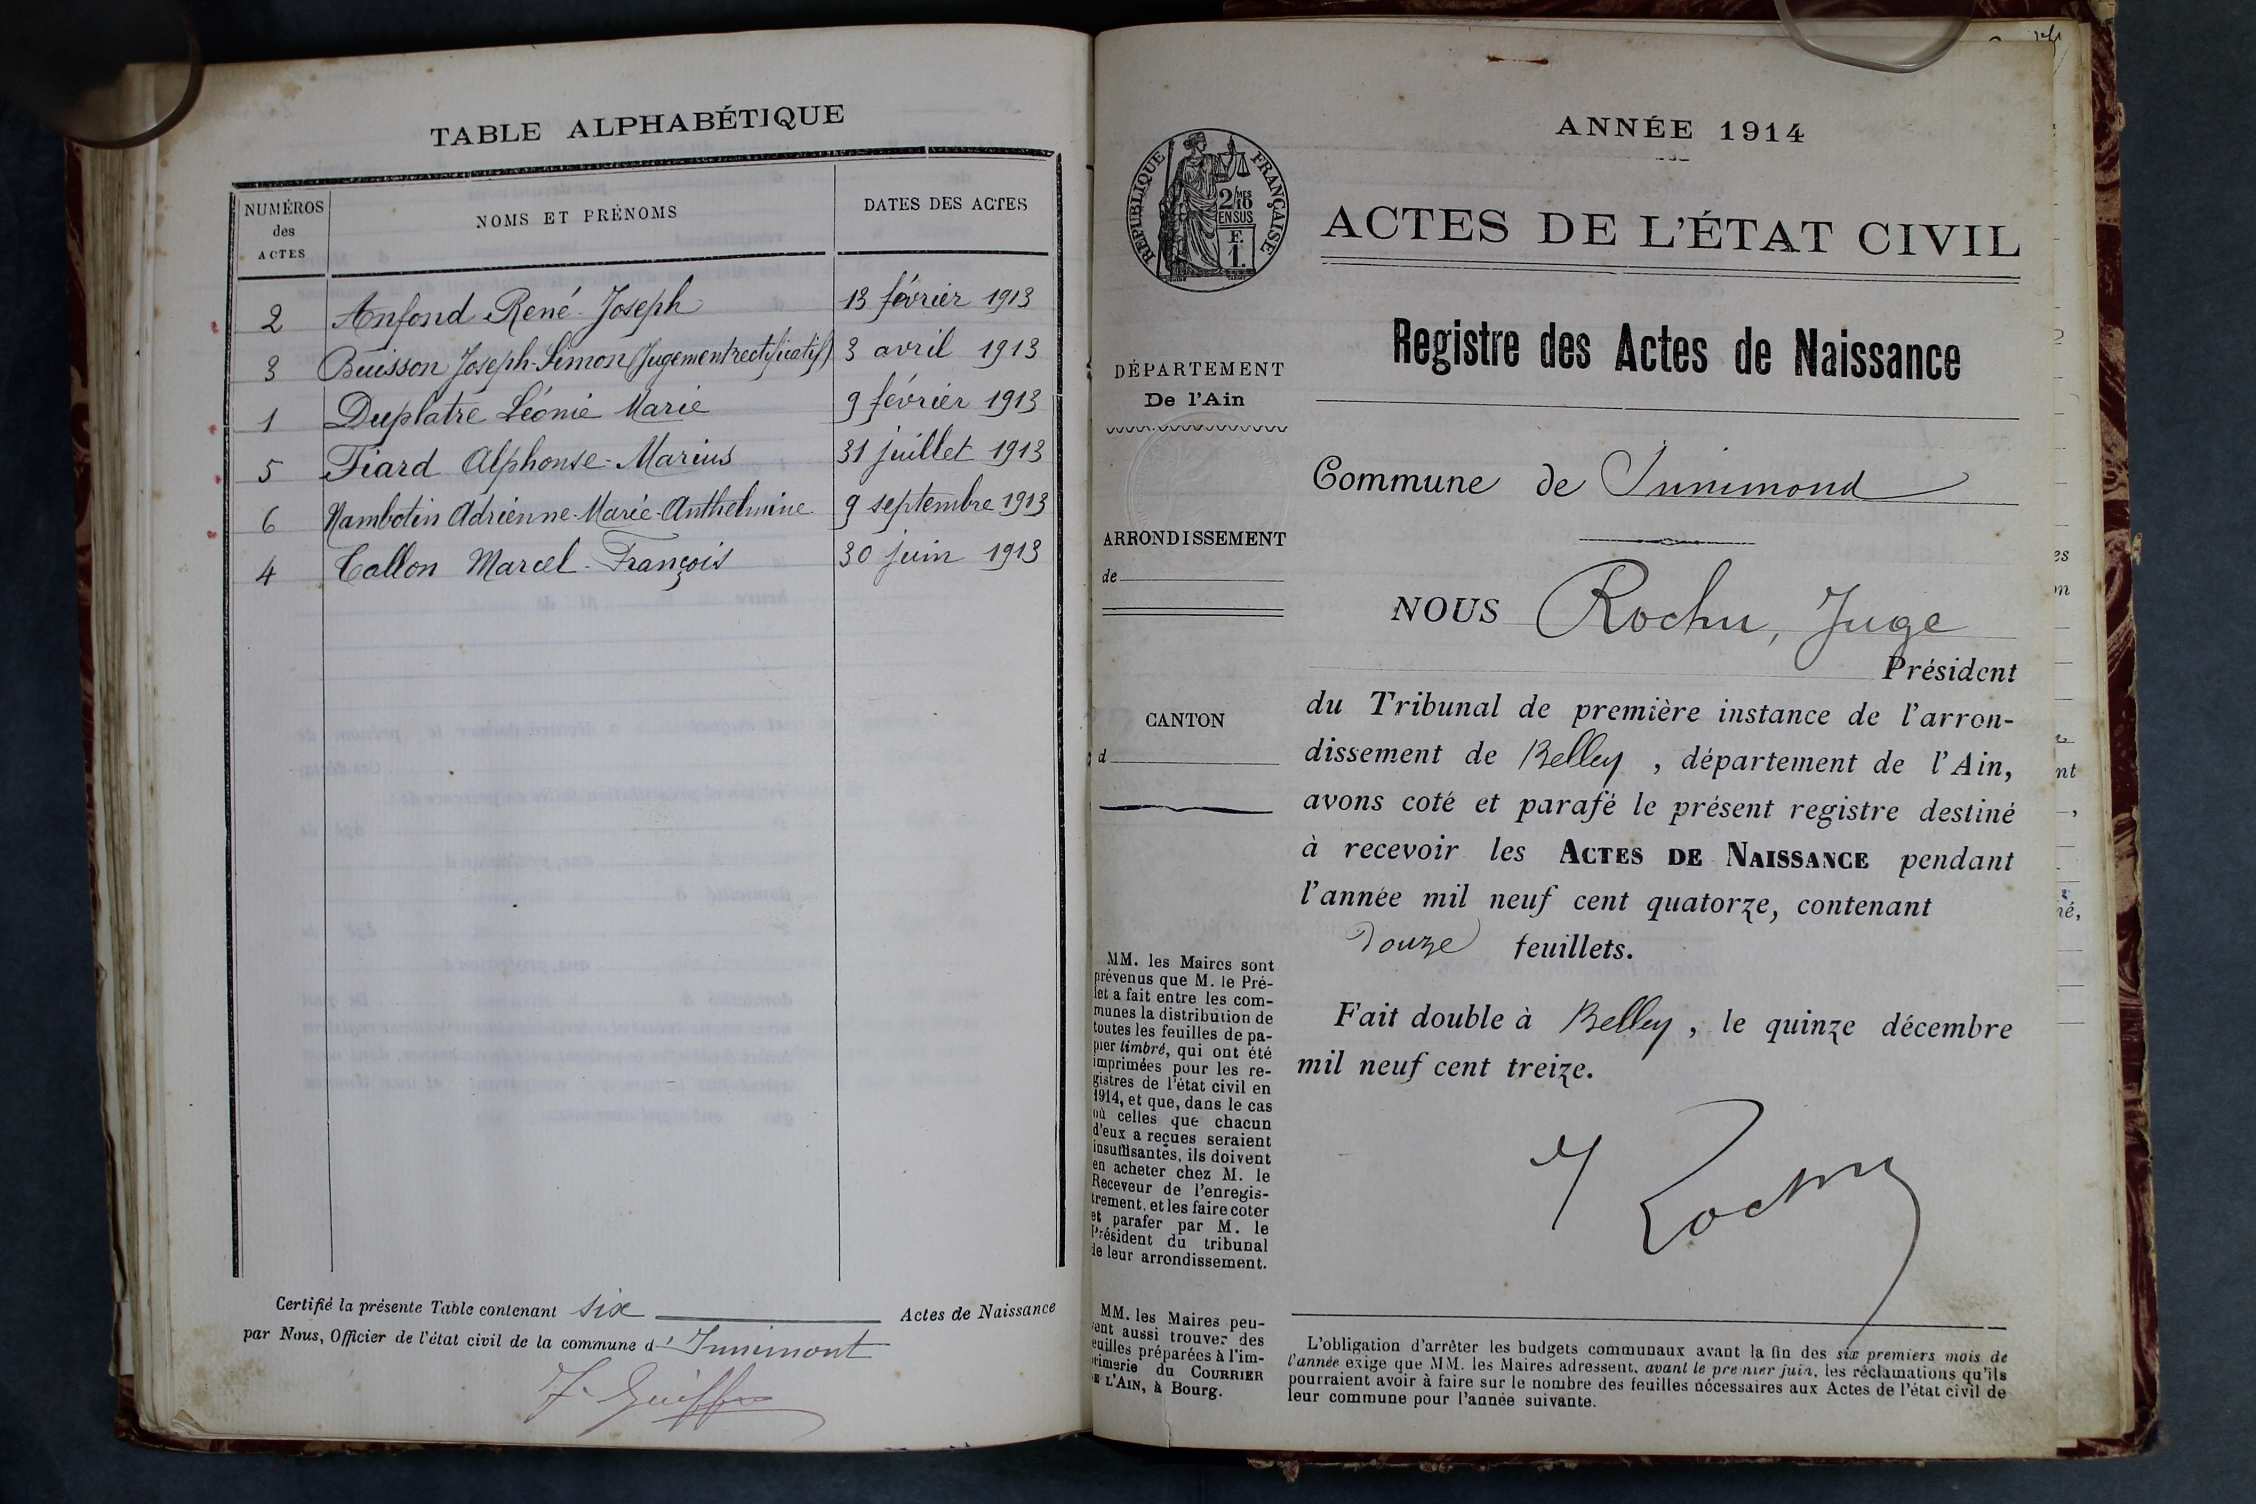 TABLE ALPHABÉTIQUE
NUMÉROS des ACTES
NOMS ET PRÉNOMS
DATES DES ACTES
2 Anfond René Joseph 13 février 1913
3 Buisson Joseph-Simon (Jugement rectificatif) 3 avril 1913
1 Duplatre Léonie Marie 9 février 1913
5 Fiard Alphonse-Marius 31 juillet 1913
6 Nambotin Adrienne-Marie-Anthelmine 9 septembre 1913
4 Tallon Marcel-François 30 juin 1913
Certifié la présente Table contenant six Actes de Naissance
par Nous, Officier de l'état civil de la commune d' Innimont
ANNÉE 1914
RÉPUBLIQUE FRANÇAISE
2/10 MES
EN SUS
F.
1.
ACTES DE L'ÉTAT CIVIL
Registre des Actes de Naissance
DÉPARTEMENT
De l'Ain
Commune de Innimond
ARRONDISSEMENT
de
NOUS Rochu, Juge
Président
CANTON
d
du Tribunal de première instance de l'arron-
dissement de Belley, département de l'Ain,
avons coté et parafé le présent registre destiné
à recevoir les ACTES DE NAISSANCE pendant
l'année mil neuf cent quatorze, contenant
Douze feuillets.
Fait double à Belley, le quinze décembre
mil neuf cent treize.
Rochu
MM. les Maires sont
prévenus que M. le Pré-
fet a fait entre les com-
munes la distribution de
toutes les feuilles de pa-
pier timbré, qui ont été
imprimées pour les re-
gistres de l'état civil en
1914, et que, dans le cas
où celles que chacun
d'eux a reçues seraient
insuffisantes, ils doivent
en acheter chez M. le
Receveur de l'enregis-
trement, et les faire coter
et parafer par M. le
Président du tribunal
de leur arrondissement.
MM. les Maires peu-
vent aussi trouver des
feuilles préparées à l'im-
primerie du COURRIER
DE L'AIN, à Bourg.
L'obligation d'arrêter les budgets communaux avant la fin des six premiers mois de
l'année exige que MM. les Maires adressent, avant le premier juin, les réclamations qu'ils
pourraient avoir à faire sur le nombre des feuilles nécessaires aux Actes de l'état civil de
leur commune pour l'année suivante.